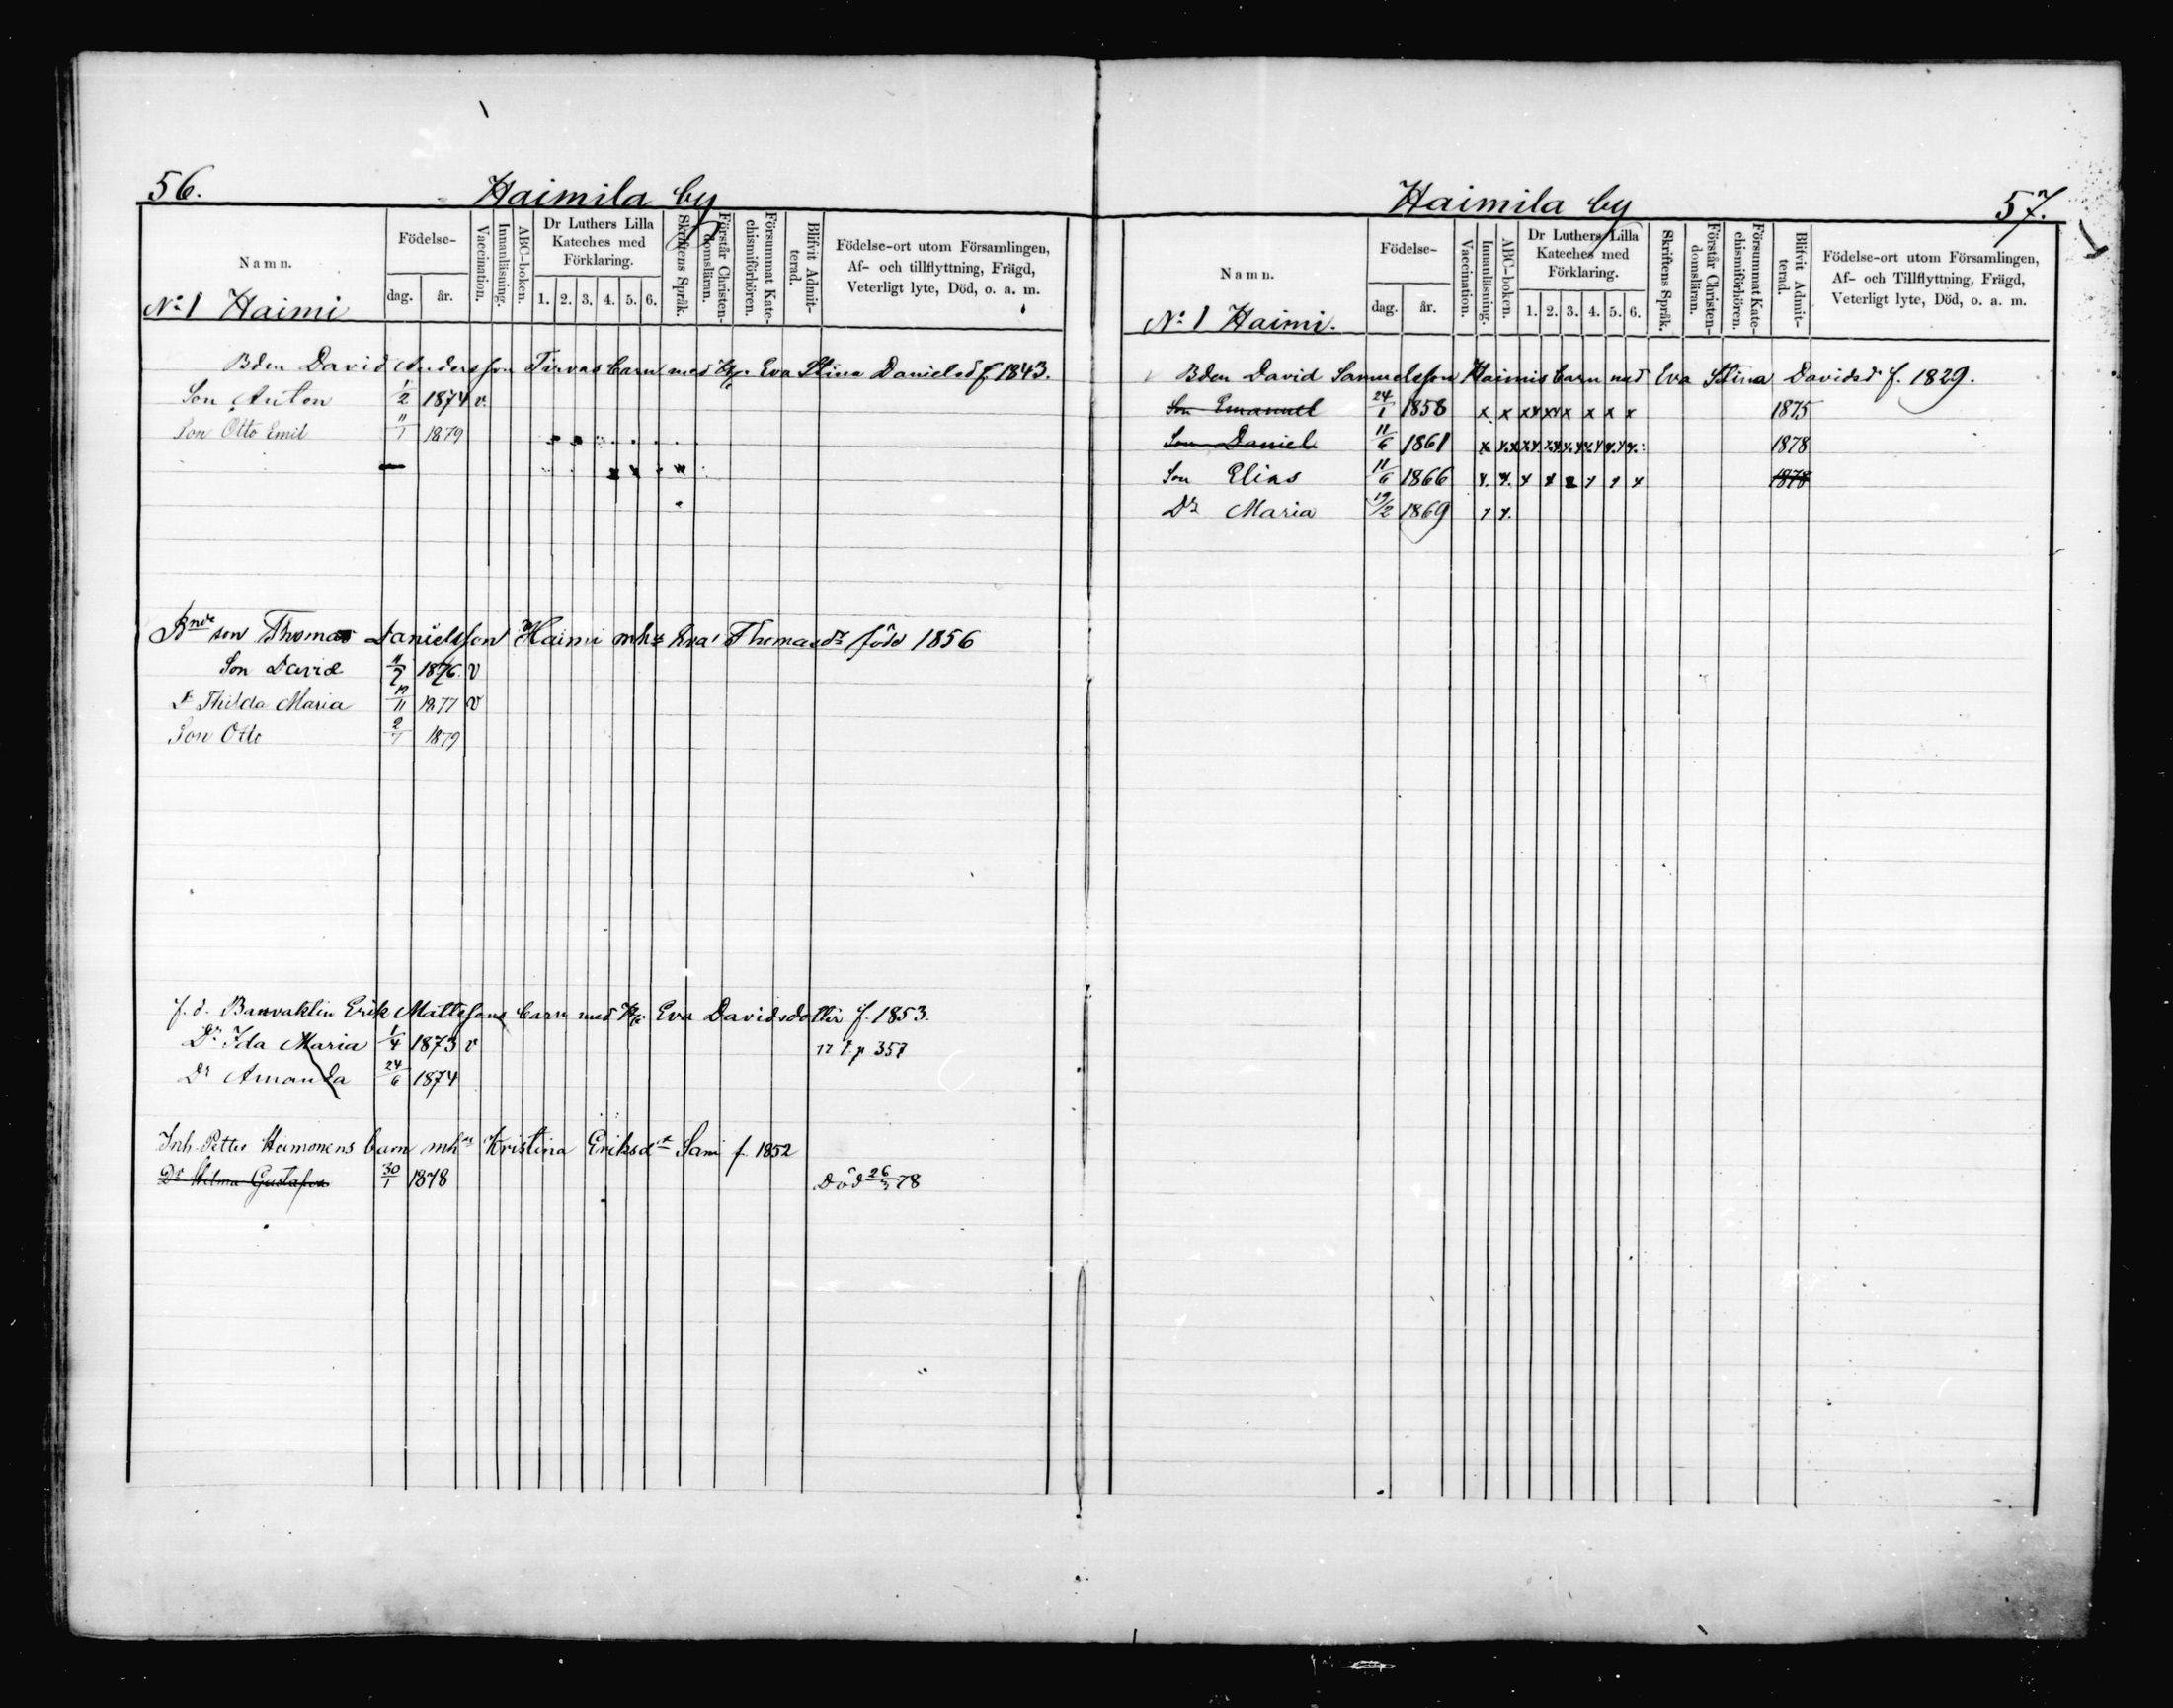 56.
Haimila by
Namn.
Födelse-
dag.
år.
Vaccination.
Innanläsning.
ABC-boken.
Dr Luthers Lilla
Kateches med
Förklaring.
1. 2. 3. 4. 5. 6.
Skriftens Språk.
Förstår Christen-
domsläran.
Försummat Kate-
chismiförhören.
Blifvit Admit-
terad.
Födelse-ort utom Församlingen,
Af- och tillflyttning, Frägd,
Veterligt lyte, Död, o. a. m.
No 1 Haimi
Bden David Andersson Tirvas barn med Eva Stina Danielsd f. 1843.
Son Anton 1/2 1874 v.
Son Otto Emil 11/1 1879
Bnde son Thomas Danielsson Haimi mhu Eva Thomasdr född 1856
Son David 1876 v
Dr Thilda Maria 1877 v
Son Otto 2/1 1879
f. d. Banvakten Erik Mattssons barn med Eva Davidsdotter f. 1853.
Dr Ida Maria 1/4 1873 v 357
Dr Amanda 24/6 1874
Inh Petter Heimonens barn mhu Kristina Eriksdr Sani f. 1852
Dr Helma Gustafva 30/1 1878 Död 78
Haimila by
57.
Namn.
Födelse-
dag.
år.
Vaccination.
Innanläsning.
ABC-boken.
Dr Luthers Lilla
Kateches med
Förklaring.
1. 2. 3. 4. 5. 6.
Skriftens Språk.
Förstår Christen-
domsläran.
Försummat Kate-
chismiförhören.
Blifvit Admit-
terad.
Födelse-ort utom Församlingen,
Af- och Tillflyttning, Frägd,
Veterligt lyte, Död, o. a. m.
No 1 Haimi.
Bden David Samuelsson Haimis barn med Eva Stina Davidsdr f. 1829.
Son Emanuel 24/1 1858 x x xx xx x x x x 1875
Son Daniel 11/6 1861 1878
Son Elias 11/6 1866 1878
Dr Maria 19/2 1869